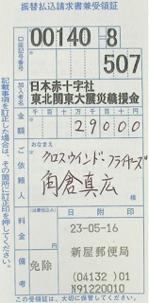 振替払込請求書兼受領証
口座記号番号
00140-8
507
加入者名
日本赤十字社
東北関東大震災義援金
金額
千百十万千百十円
29000
ご依頼人
おなまえ
クロスウインド・フライヤーズ
角倉真広
料金
(消費税込み)
日附印
23-05-16
新屋郵便局
備考
免除
(04132) 01
N91220010
この受領証は、大切に保管してください。
記載事項を訂正した場合は、その箇所に訂正印を押してください。